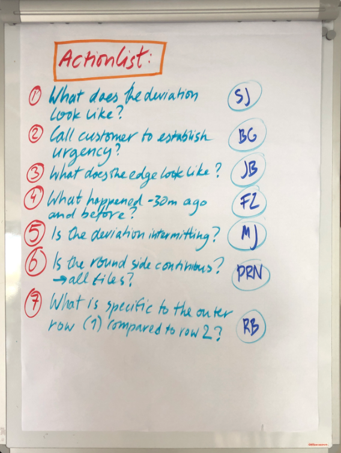 Actionlist:
① What does the deviation SJ
look like?
② Call customer to establish BG
urgency?
③ What does the edge look like? JB
④ What happened -30m ago FZ
and before?
⑤ Is the deviation intermitting? MJ
⑥ Is the round side continous? PRN
→ all files?
⑦ What is specific to the outer
row (1) compared to row 2? RB